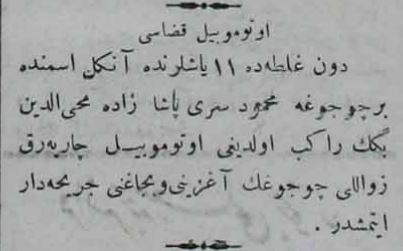 اوتوموبيل قضاسى
دون غلطه‌ده ١١ ياشلرنده آنكل اسمنده
برچوجوغه محمود سرى پاشا زاده محى‌الدين
بكك راكب اولديغى اوتوموبيل چارپه‌رق
زواللى چوجوغك آغزينى وبجاغنى جريحه‌دار
ايتمشدر .